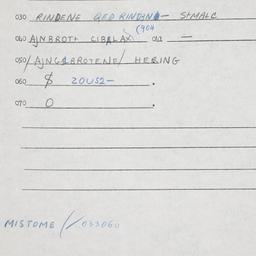 030 RINDENE QED RINDAN — STMALC
(904
040 AJNBROTH CIBALAX 042 —
050/ AJNGLBROTENE/ HERING
060 $ 20US2— .
070 O .
MISTOME //033060